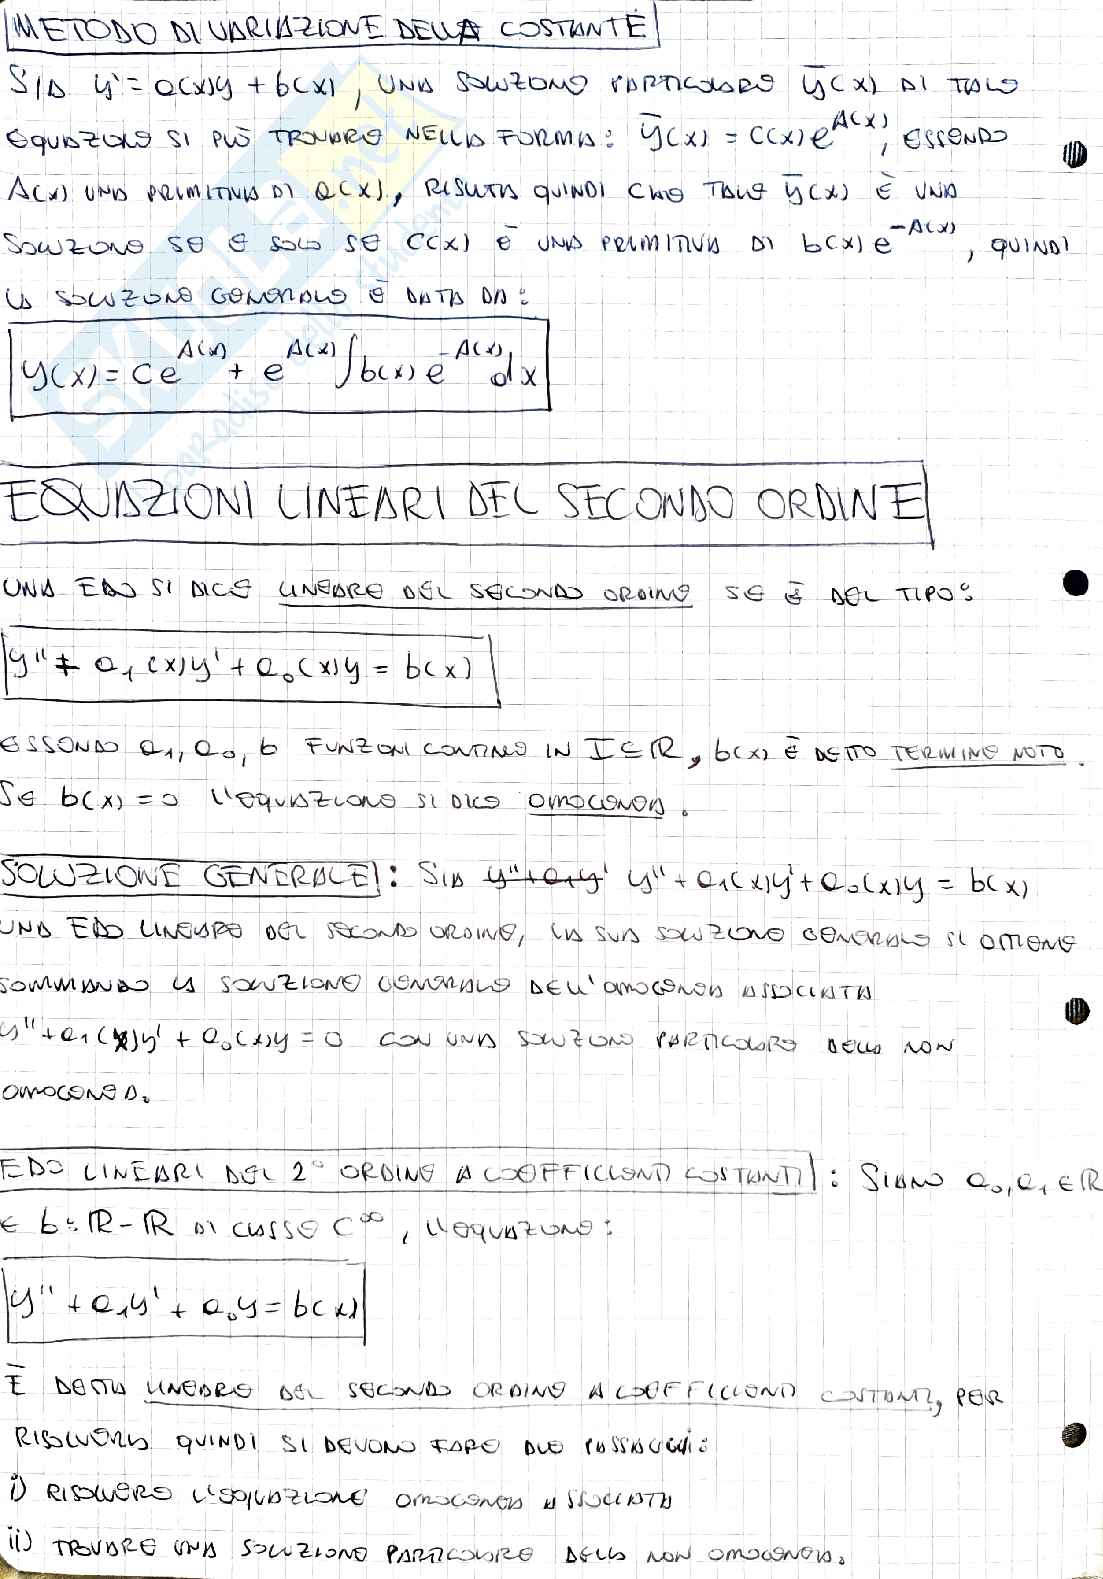 METODO DI VARIAZIONE DELLA COSTANTE
SIA y' = a(x)y + b(x), UNA SOLUZIONE PARTICOLARE ȳ(x) DI TALE
EQUAZIONE SI PUÒ TROVARE NELLA FORMA: ȳ(x) = c(x)e^A(x), ESSENDO
A(x) UNA PRIMITIVA DI a(x), RISULTA QUINDI CHE TALE ȳ(x) È UNA
SOLUZIONE SE E SOLO SE c(x) È UNA PRIMITIVA DI b(x)e^-A(x), QUINDI
LA SOLUZIONE GENERALE È DATA DA:
y(x) = ce^A(x) + e^A(x) ∫b(x)e^-A(x) dx
EQUAZIONI LINEARI DEL SECONDO ORDINE
UNA EDO SI DICE LINEARE DEL SECONDO ORDINE SE È DEL TIPO:
y'' + a₁(x)y' + a₀(x)y = b(x)
ESSENDO a₁, a₀, b FUNZIONI CONTINUE IN I⊆ℝ, b(x) È DETTO TERMINE NOTO.
SE b(x) = 0 L'EQUAZIONE SI DICE OMOGENEA.
SOLUZIONE GENERALE: SIA y''+a₁y' y'' + a₁(x)y' + a₀(x)y = b(x)
UNA EDO LINEARE DEL SECONDO ORDINE, LA SUA SOLUZIONE GENERALE SI OTTIENE
SOMMANDO LA SOLUZIONE GENERALE DELL'OMOGENEA ASSOCIATA
y'' + a₁(x)y' + a₀(x)y = 0 CON UNA SOLUZIONE PARTICOLARE DELLA NON
OMOGENEA.
EDO LINEARI DEL 2° ORDINE A COEFFICIENTI COSTANTI: SIANO a₀, a₁ ∈ ℝ
E b: ℝ-ℝ DI CLASSE C^∞, L'EQUAZIONE:
y'' + a₁y' + a₀y = b(x)
È DETTA LINEARE DEL SECONDO ORDINE A COEFFICIENTI COSTANTI, PER
RISOLVERLA QUINDI SI DEVONO FARE DUE PASSAGGI:
i) RISOLVERE L'EQUAZIONE OMOGENEA ASSOCIATA
ii) TROVARE UNA SOLUZIONE PARTICOLARE DELLA NON OMOGENEA.